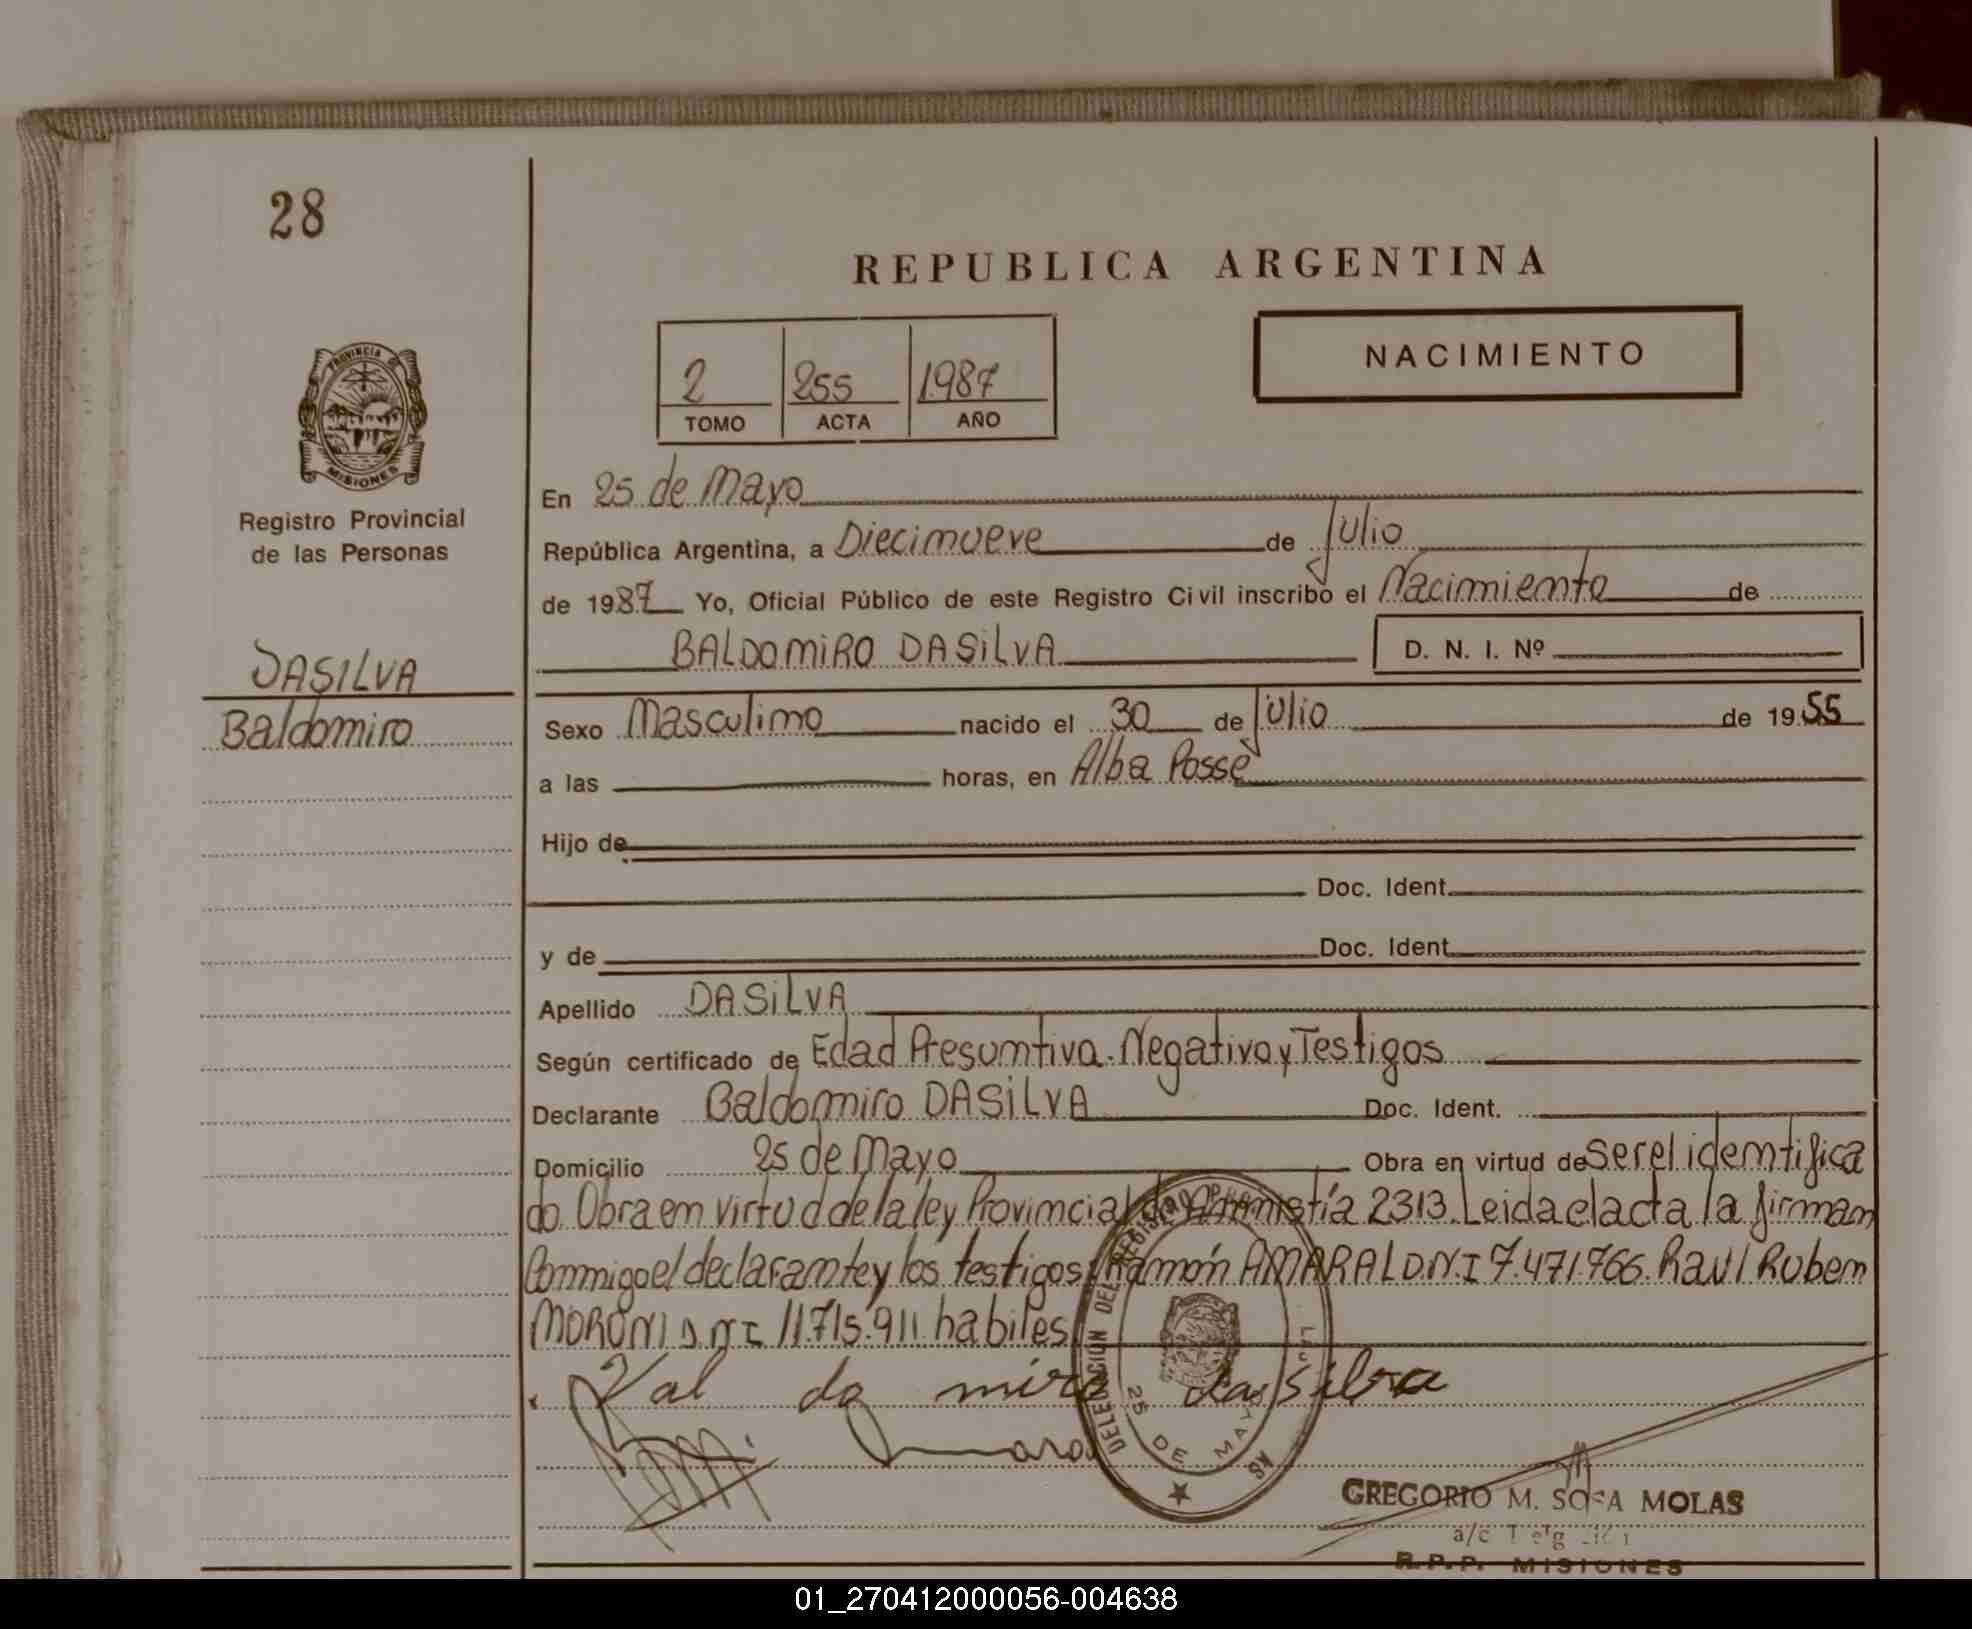 28
REPUBLICA ARGENTINA
NACIMIENTO
2 255 1987
TOMO ACTA AÑO
PROVINCIA DE
MISIONES
Registro Provincial
de las Personas
DASILVA
Baldomiro
En 25 de Mayo
República Argentina, a Diecinueve de Julio
de 1987 Yo, Oficial Público de este Registro Civil inscribo el Nacimiento de
BALDOMIRO DASILVA D. N. I. Nº
Sexo Masculino nacido el 30 de Julio de 1955
a las horas, en Alba Posse
Hijo de
Doc. Ident.
y de Doc. Ident.
Apellido DASILVA
Según certificado de Edad Presuntiva. Negativo y Testigos
Declarante Baldomiro DASILVA Doc. Ident.
Domicilio 25 de Mayo Obra en virtud de ser el identifica
do. Obra en virtud de la ley Provincial de Amnistía 2313. Leida el acta la firman
Conmigo el declarante y los testigos: Ramón AMARAL D.N.I 7.471.766. Raul Ruben
MORONI D.N.I 11.715.911 habiles
Val do miro da silva
DELEGACIÓN DEL REGISTRO
25 DE MAYO
GREGORIO M. SOSA MOLAS
a/c
R.P.P. MISIONES
01_270412000056-004638